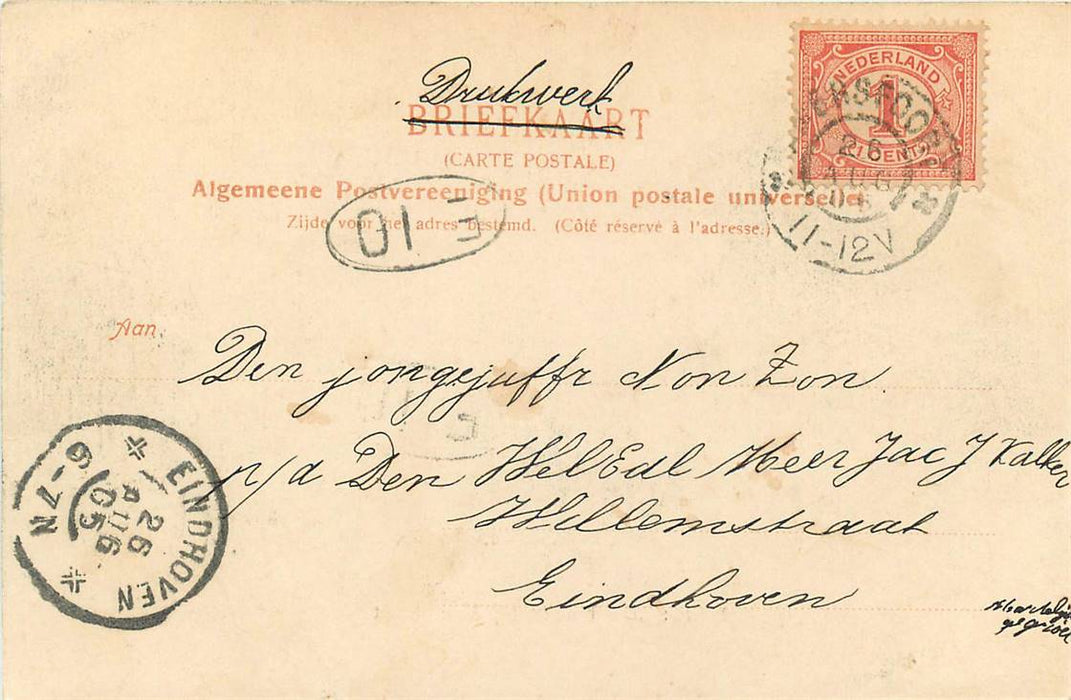 Drukwerk
BRIEFKAART
(CARTE POSTALE)
Algemeene Postvereeniging (Union postale universelle)
Zijde voor het adres bestemd. (Côté réservé à l'adresse.)
NEDERLAND
1
1 CENT
26
AUG
05
11-12V
10
Aan:
Den jongejuffr Non Zon
p/a Den WelEdl Heer Jac J Kalker
Willemstraat
Eindhoven
EINDHOVEN
26
AUG
05
6-7N